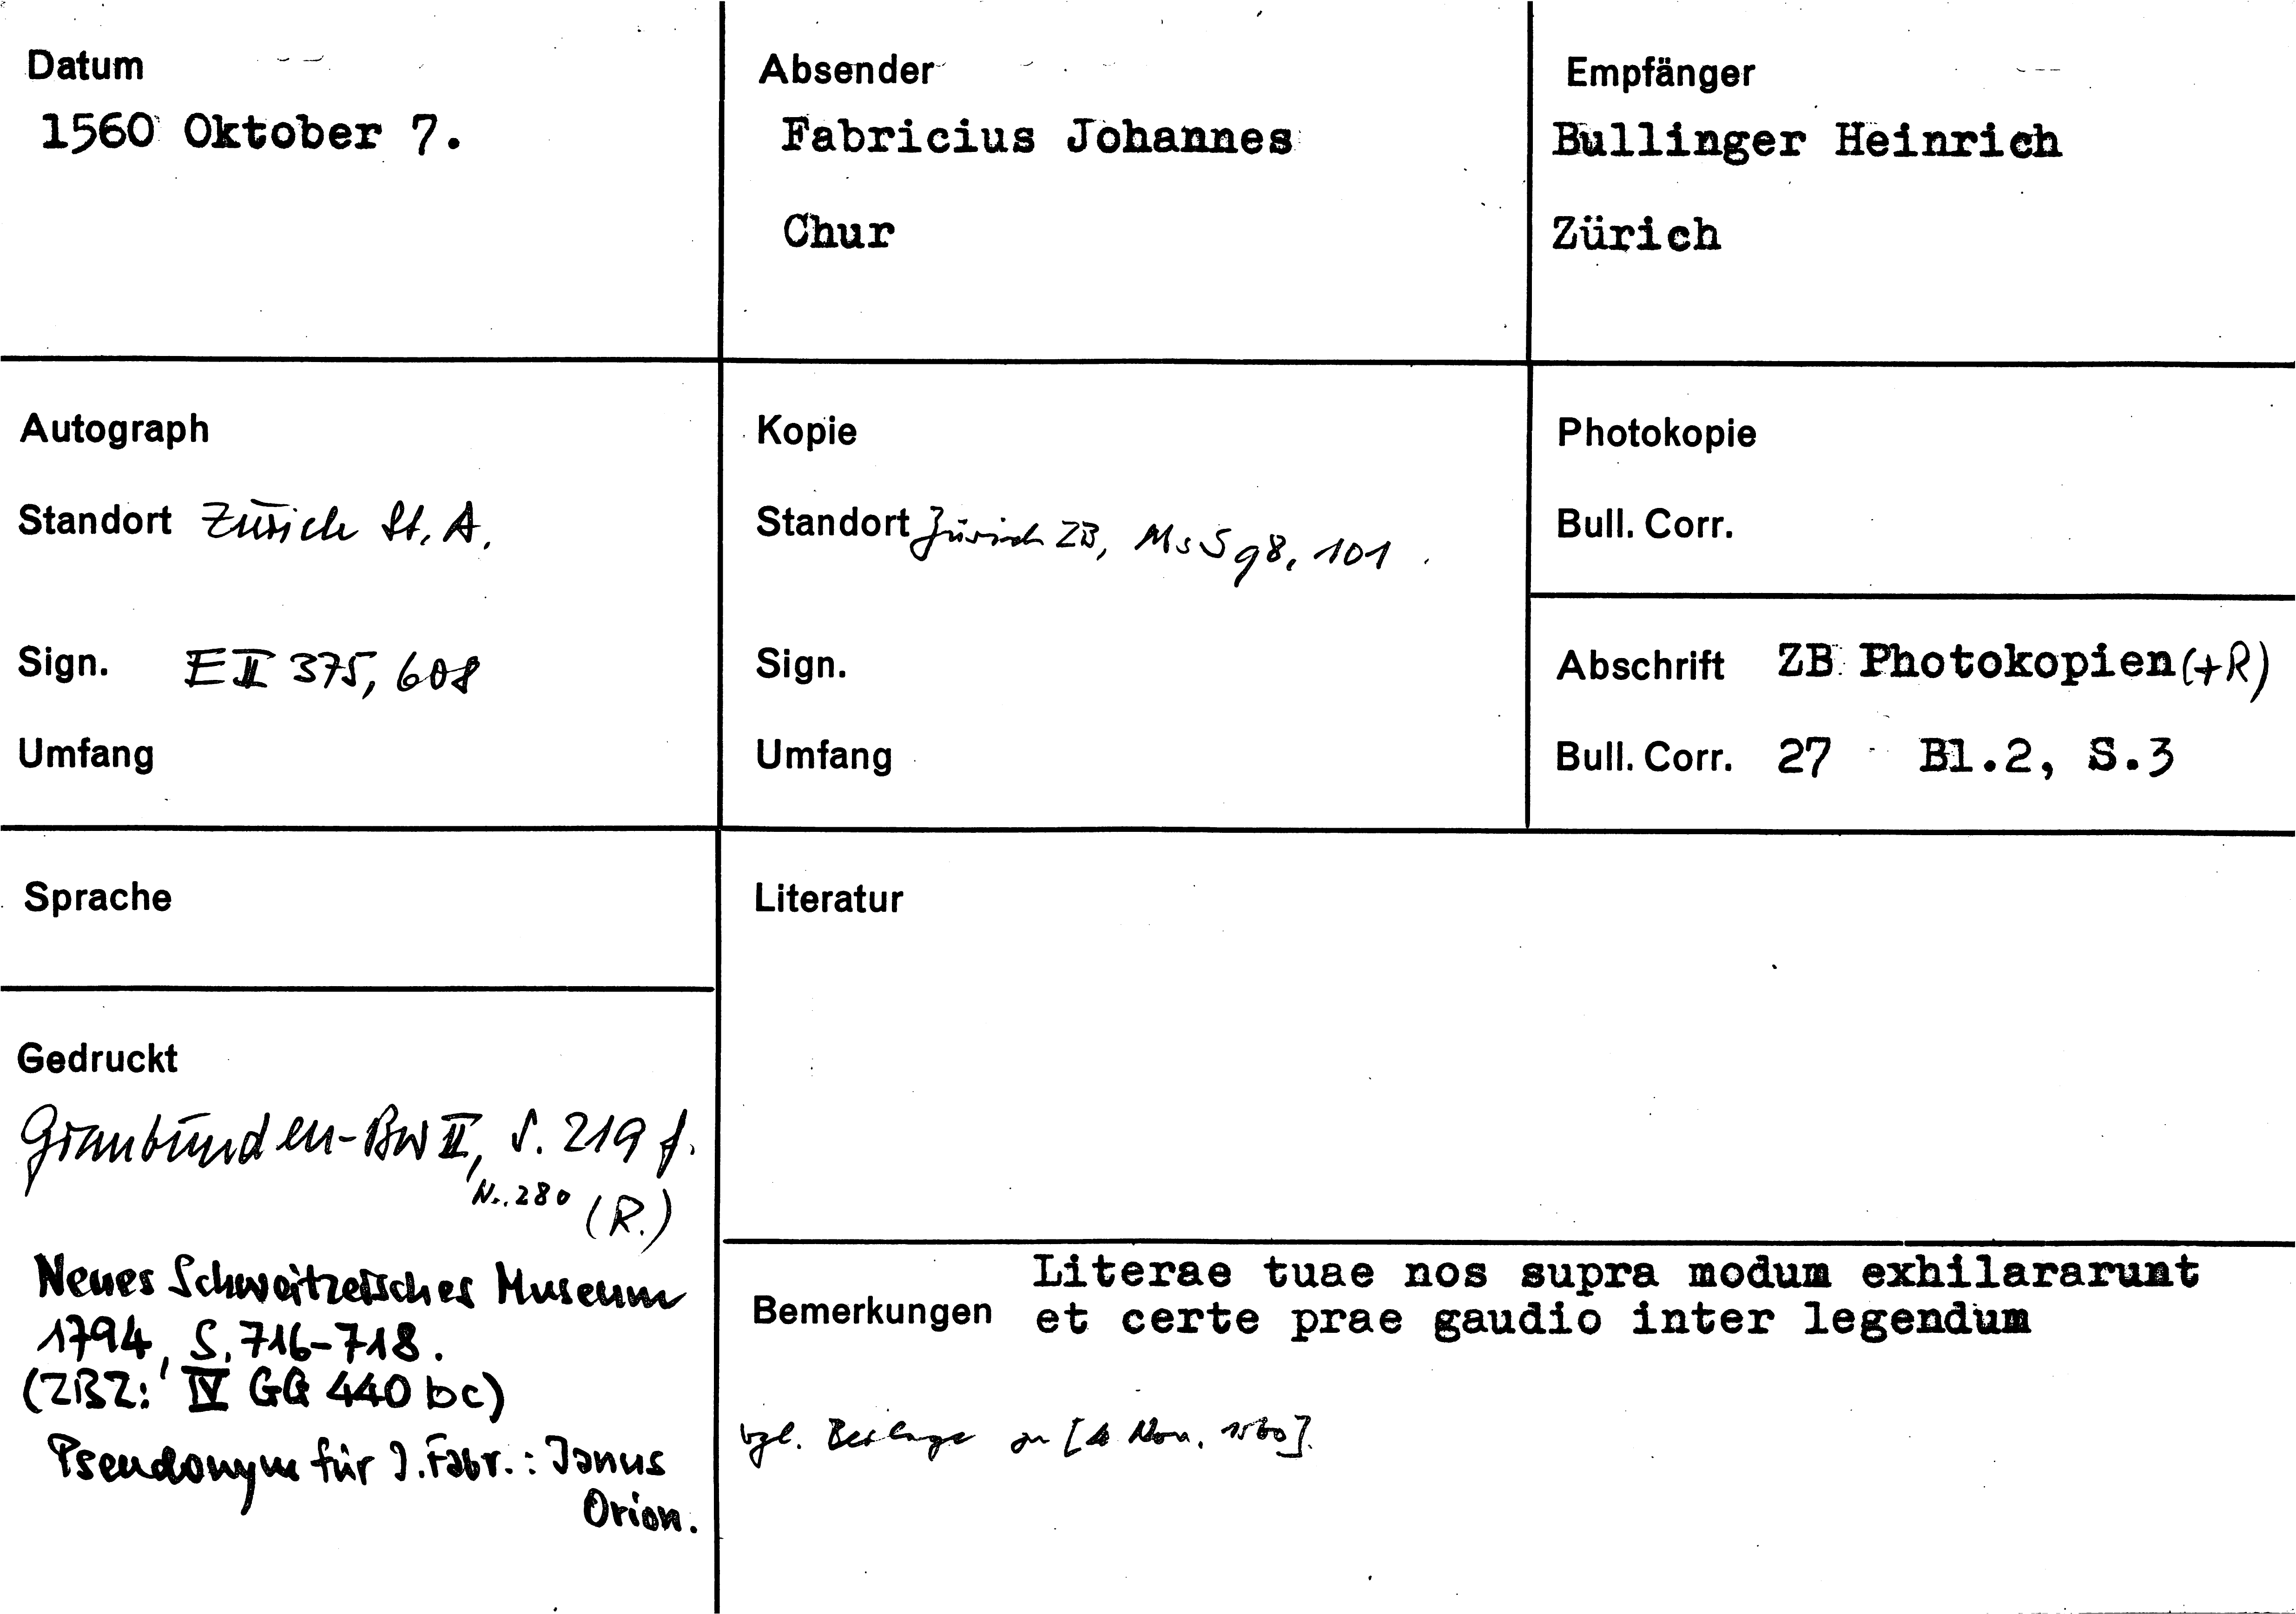 Datum
1560 Oktober 7.
Absender
Fabricius Johannes
Chur
Empfänger
Bullinger Heinrich
Zürich
Autograph
Standort Zürich St. A.
Sign. E II 375, 608
Umfang
Kopie
Standort Zürich ZB, Ms S 98, 101.
Sign.
Umfang
Photokopie
Bull. Corr.
Abschrift ZB Photokopien (+R)
Bull. Corr. 27 Bl.2, S.3
Sprache
Gedruckt
Graubünden-BW II, S. 219 f.
Nr. 280 (R.)
Neues Schweitzerisches Museum
1794, S. 716-718.
(ZBZ: IV GG 440 bc)
Pseudonym für J. Fabr.: Janus
Orion.
Literatur
Bemerkungen
Literae tuae nos supra modum exhilararunt
et certe prae gaudio inter legendum
vgl. Beilage zu [4 Nov. 1560].